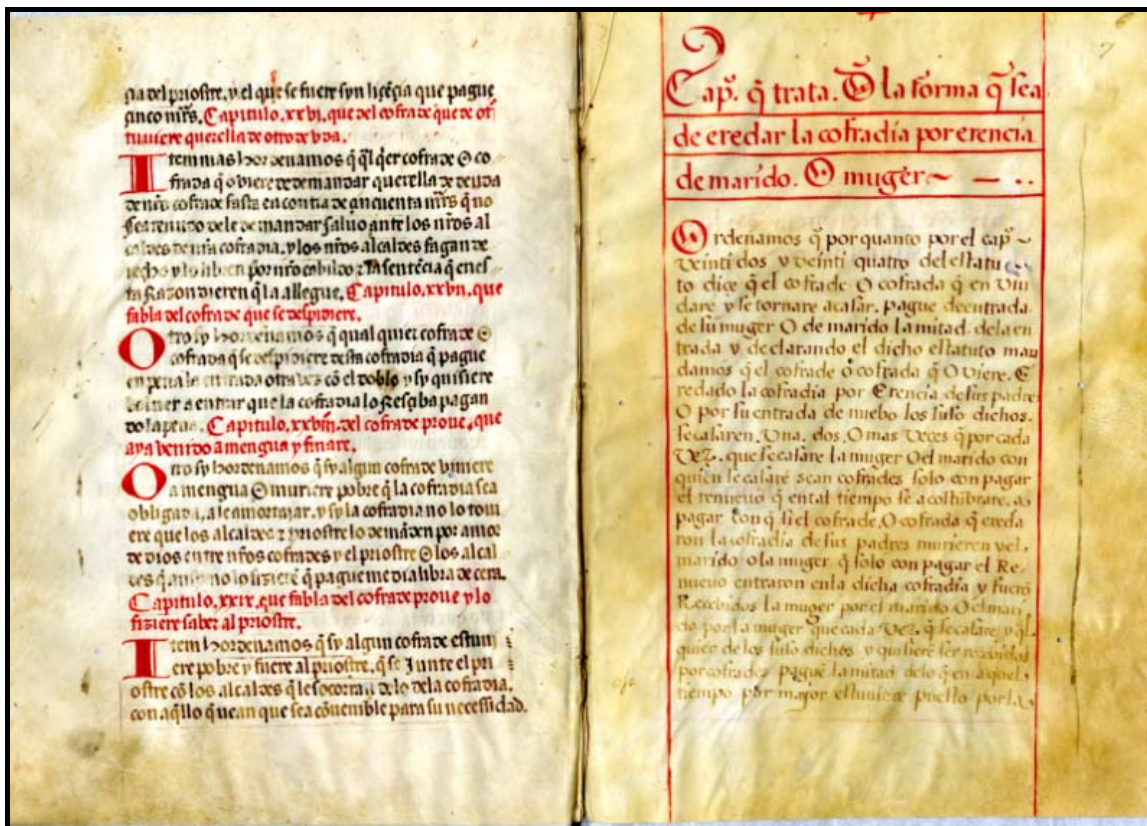 çia del priostre, y el que se fuere syn liçençia que pague
çinco mr̃s. Capitulo. xxvi. que del cofrade que de ot
tuuiere querella de otro de vda.
Item mas hordenamos q̃ q̃l q̃er cofrade O co
frada q̃ oviere de demandar querella de deuda
de nr̃o cofrade fasta en contia de çincuenta mr̃s q̃ no
sea tenudo de le demandar saluo ante los nr̃os al
caldes de nr̃a cofradia. y los nr̃os alcaldes fagan de
recho y lo libren por nr̃o cabildo z la sentẽcia q̃ en es
ta Razon dieren q̃ la allegue. Capitulo. xxvii. que
fabla del cofrade que se despidiere.
Otro sy hordenamos q̃ qual quier cofrade O
cofrada q̃ se despidiere desta cofradia q̃ pague
en pena la entrada otra ves cõ el doblo y sy quisiere
boluer a entrar que la cofradia lo Resçiba pagan
do la pena. Capitulo. xxviii. del cofrade proue, que
aya benido a mengua y finare.
Otro sy hordenamos q̃ sy algun cofrade biniere
a mengua O muriere pobre q̃ la cofradia sea
obligada, a le amortajar. y sy la cofradia no lo tovi
ere que los alcaldes z priostre lo demãden por amor
de dios entre nr̃os cofrades y el priostre O los alcal
des q̃ ansy no lo fiziere q̃ pague media libra de cera.
Capitulo. xxix. que fabla del cofrade proue y lo
fiziere saber al priostre.
Item hordenamos q̃ sy algun cofrade estuui
ere pobre y fuere al priostre. q̃ se Junte el pri
ostre cõ los alcaldes q̃ le socorran de lo de la cofradia.
con aq̃llo q̃ vean que sea cõuenible para su necessidad.
Cap̃. q̃ trata. D̃ la forma q̃ sea
de eredar la cofradia por erencia
de marido. O muger ~ — . .
Ordenamos q̃ por quanto por el cap̃ ~
veinti dos y veinti quatro del estatu
to dice q̃ el cofrade O cofrada q̃ en viu
dare y se tornare a casar. pague de entrada
de su muger O de marido la mitad. de la en
trada y declarando el dicho estatuto man
damos q̃ el cofrade o cofrada q̃ O viere. E
redado la cofradia por Erencia de sus padres
O por su entrada de nuebo los suso dichos.
se casaren. Una. dos. O mas Veces q̃ por cada
Vez. que se casare la muger O el marido con
quien se casare sean cofrades solo con pagar
el renuevo q̃ en tal tiempo se acostũbrare. a
pagar con q̃ si el cofrade. O cofrada q̃ ereda
ron la cofradia de sus padres murieren y el.
marido o la muger. q̃ solo con pagar el Re
nuevo entraron en la dicha cofradia y fuerõ
Recebidos la muger por el marido O el mari
do por la muger que cada Vez. q̃ se casare y q̃l
quier de los suso dichos. y quisierẽ ser recebidos
por cofrades paguẽ la mitad de lo q̃ en aquel.
tiempo por mayor estuviere puesto por la